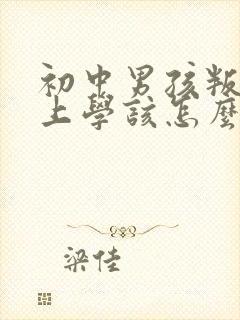 初中男孩叛
上學該怎麼
梁佳